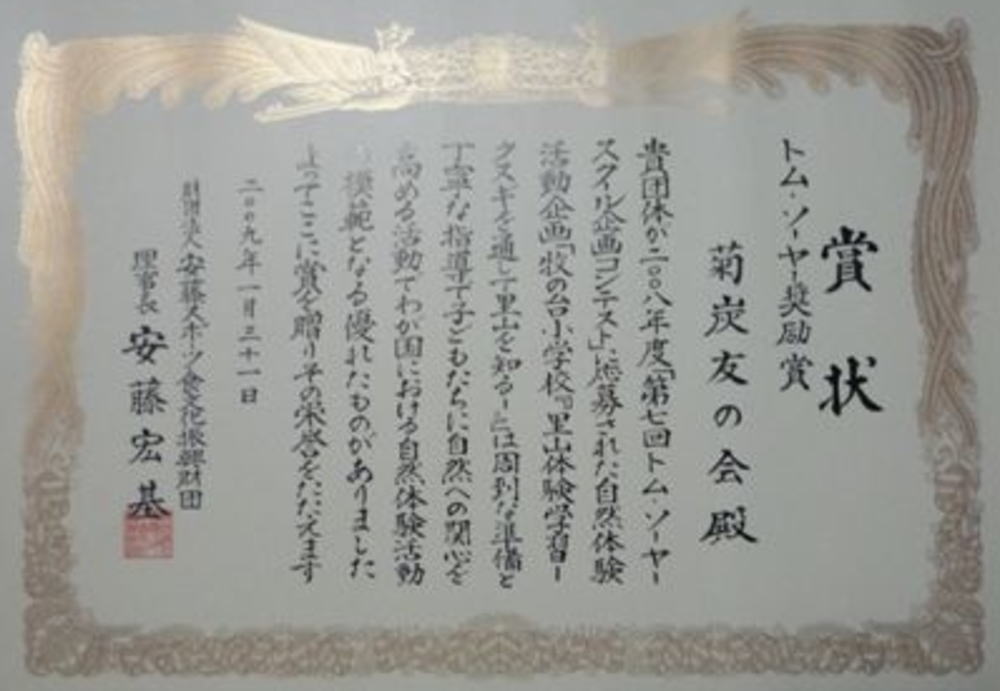 賞状
トム・ソーヤー奨励賞
菊炭友の会殿
貴団体が二〇〇八年度「第七回トム・ソーヤー
スクール企画コンテスト」に応募された自然体験
活動企画「牧の台小学校『里山体験学習ー
クヌギを通して里山を知るー』」は周到な準備と
丁寧な指導で子どもたちに自然への関心を
高める活動でわが国における自然体験活動
の模範となる優れたものがありました
よってここに賞を贈りその栄誉をたたえます
二〇〇九年一月三十一日
財団法人安藤スポーツ・食文化振興財団
理事長 安藤宏基